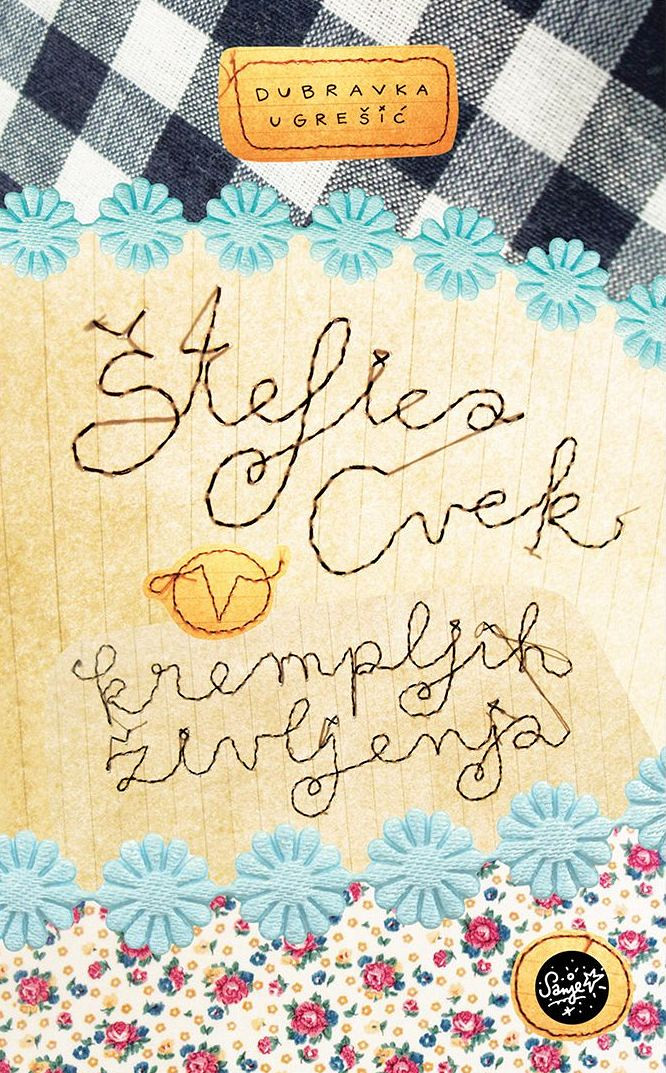 DUBRAVKA
UGREŠIĆ
Štefica
Cvek
v
krempljih
življenja
Sanje